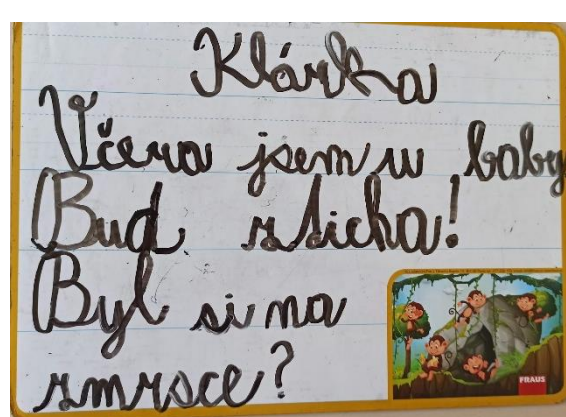 Klárka
Včera jsem u baby
Bud sticha!
Byl si na
smrsce?
FRAUS